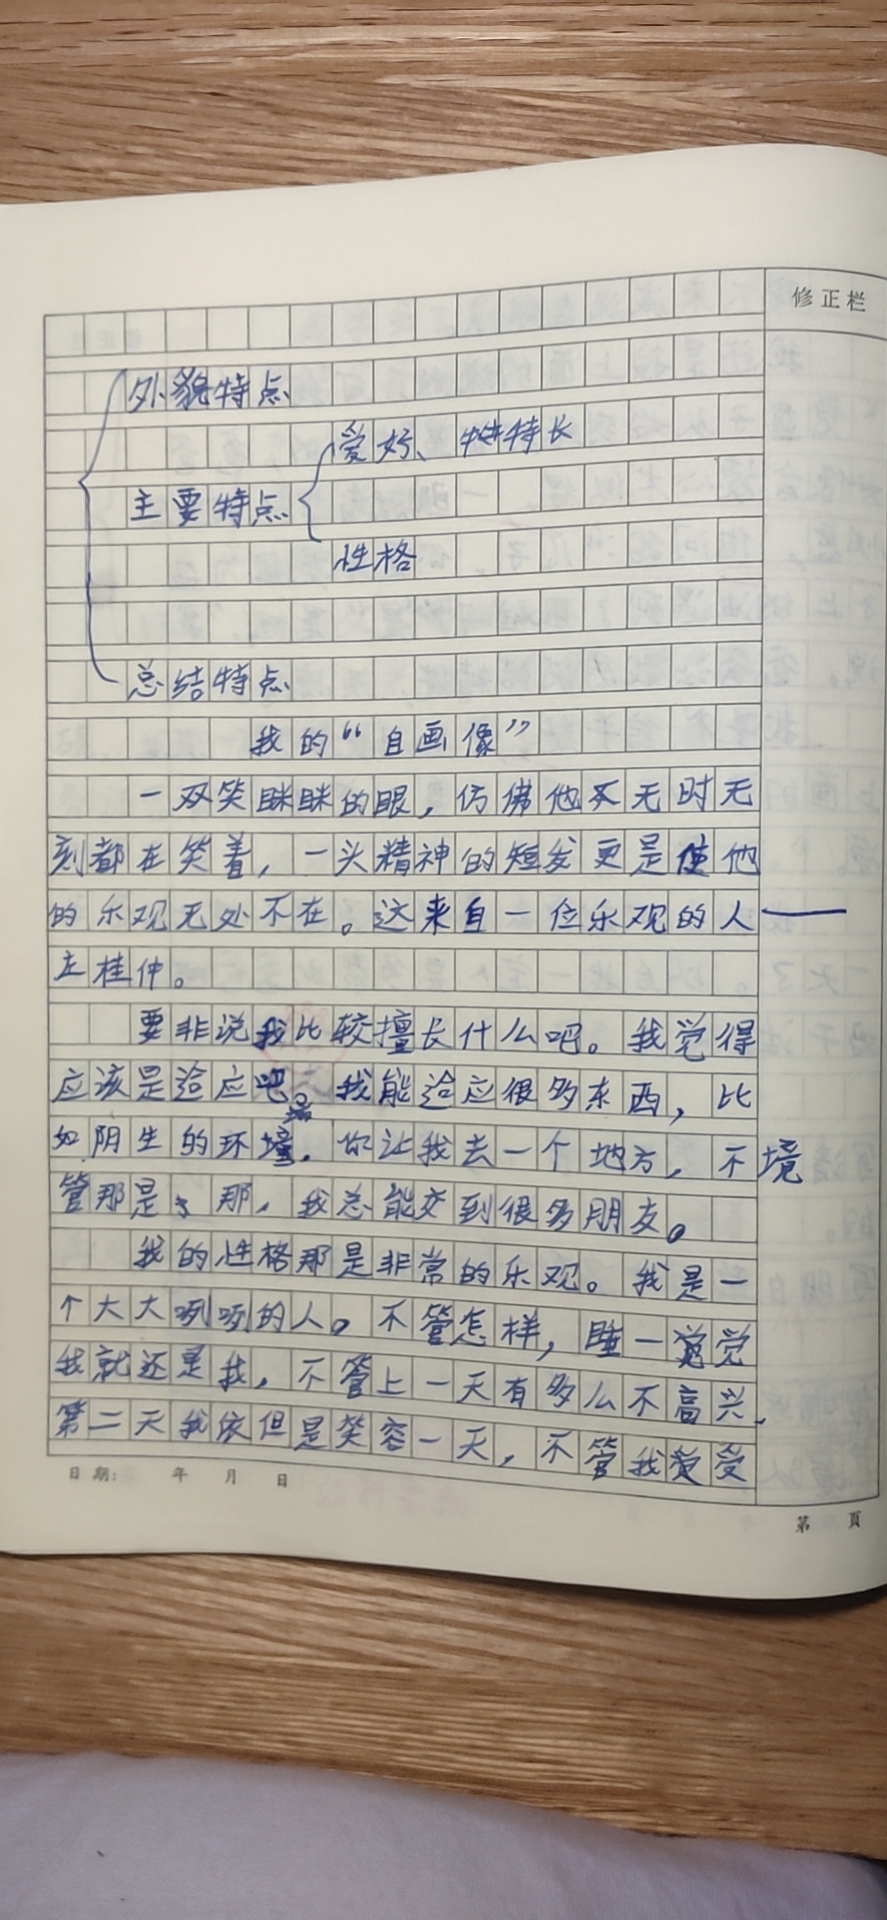 修正栏
外貌特点
爱好、特长
主要特点
性格
总结特点
我的“自画像”
一双笑眯眯的眼，仿佛他无时无
刻都在笑着，一头精神的短发更是使他
的乐观无处不在。这来自一位乐观的人——
主桂仲。
要非说我比较擅长什么吧。我觉得
应该是适应吧。我能适应很多东西，比
如阴生的环境。你让我去一个地方，不
境
管那是、那，我总能交到很多朋友。
我的性格那是非常的乐观。我是一
个大大咧咧的人。不管怎样，睡一觉觉
我就还是我，不管上一天有多么不高兴，
第二天我依但是笑容一天，不管我受
日期： 年 月 日
第 頁